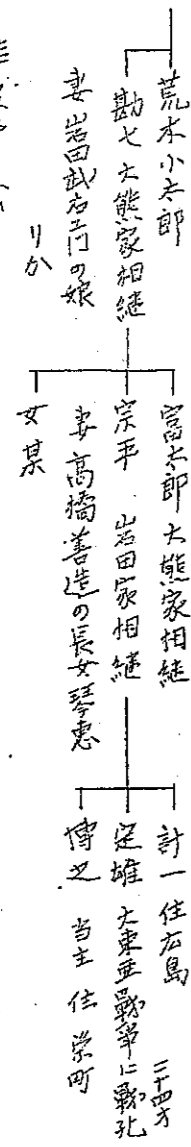 荒木小太郎
勘七 大熊家相継
妻 岩田武右エ門の娘
りか
富太郎 大熊家相継
宗平 岩田家相継
妻 高橋善造の長女琴恵
女某
計一 住広島
定雄 大東亜戦争に戦死
二十四才
博之 当主 住 栄町